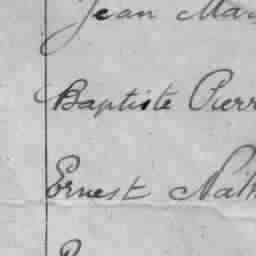 Jean Mar
Baptiste Pierr
Ernest Nath